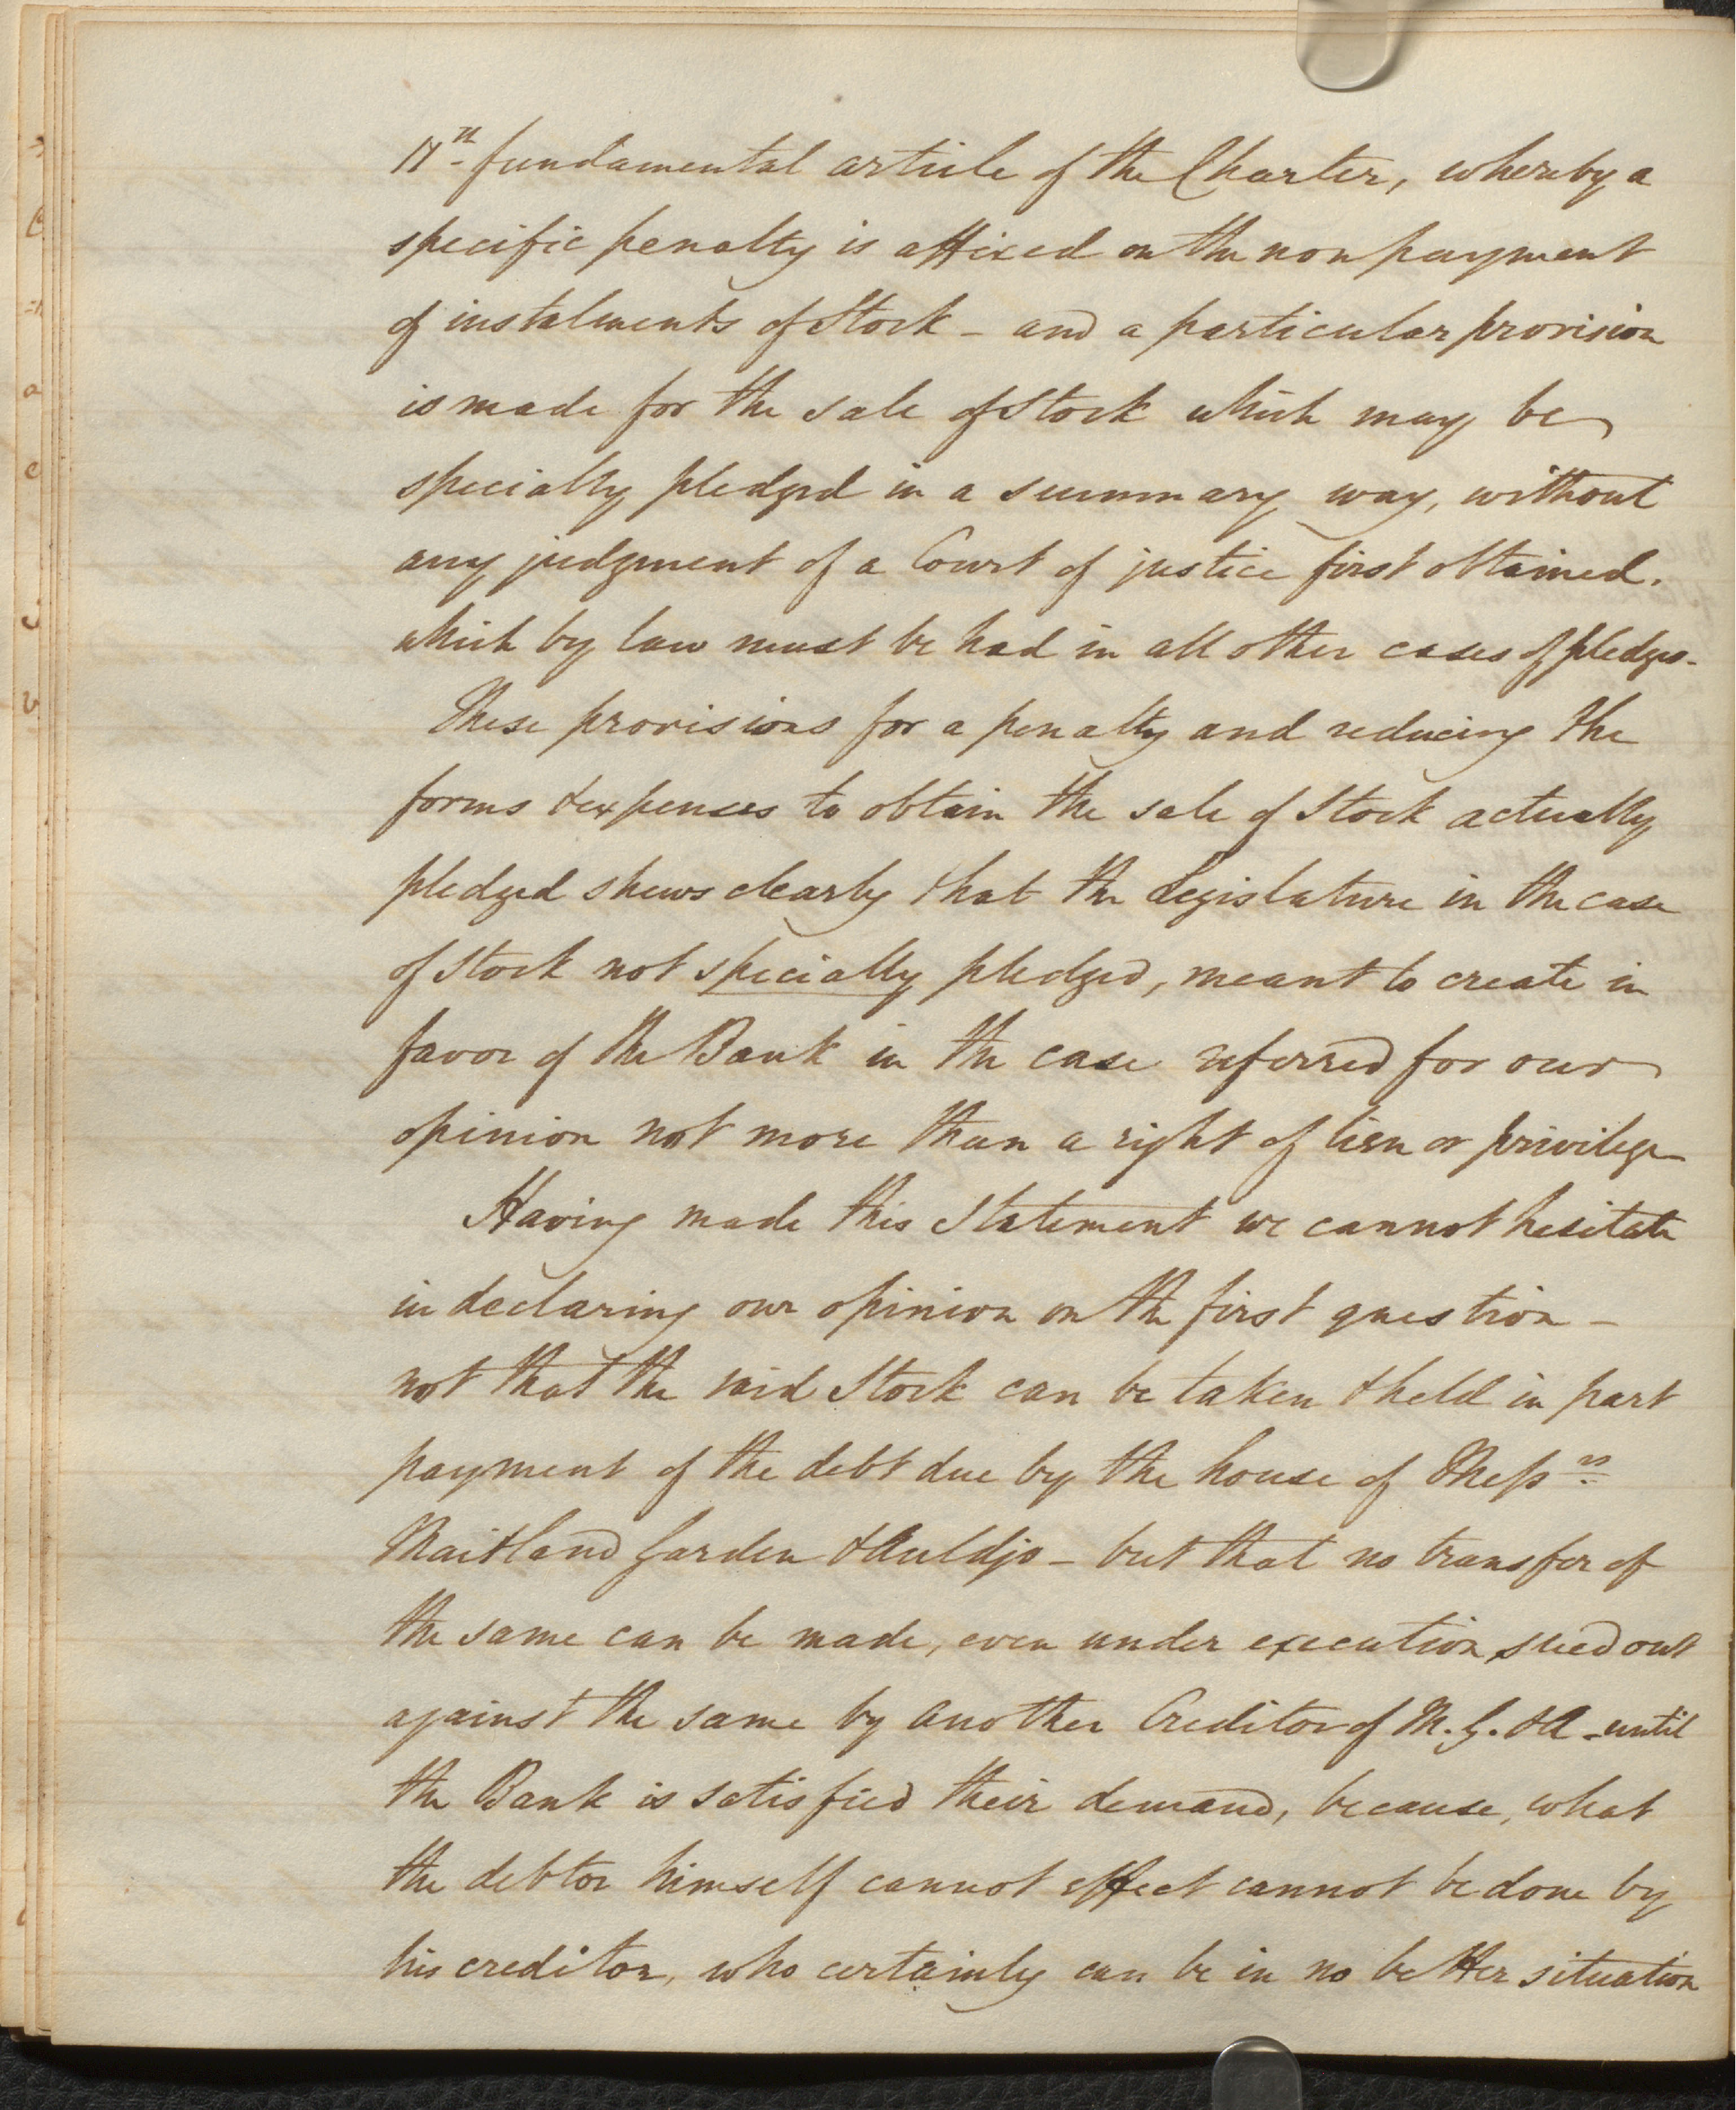 17th fundamental article of the Charter, whereby a
specific penalty is affixed on the non payment
of instalments of Stock - and a particular provision
is made for the sale of Stock which may be
specially pledged in a summary way, without
any judgment of a Court of justice first obtained.
which by law must be had in all other cases of pledges-
These provisions for a penalty and reducing the
forms & expenses to obtain the sale of Stock actually
pledged shews clearly that the Legislature in the case
of Stock not specially pledged, meant to create in
favor of the Bank in the case referred for our
opinion not more than a right of lien or privilege
Having made this Statement we cannot hesitate
in declaring our opinion on the first question -
not that the said Stock can be taken & held in part
payment of the debt due by the house of Messrs
Maitland Garden & Auldjo - but that no transfer of
the same can be made, even under execution sued out
against the same by another Creditor of M. G. & A - until
the Bank is satisfied their demand, because, what
the debtor himself cannot effect cannot be done by
his creditor, who certainly can be in no better situation